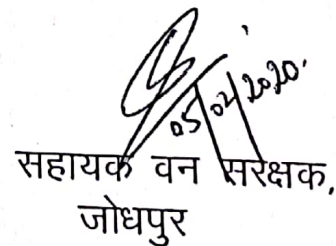 05/02/2020.
सहायक वन संरक्षक,
जोधपुर